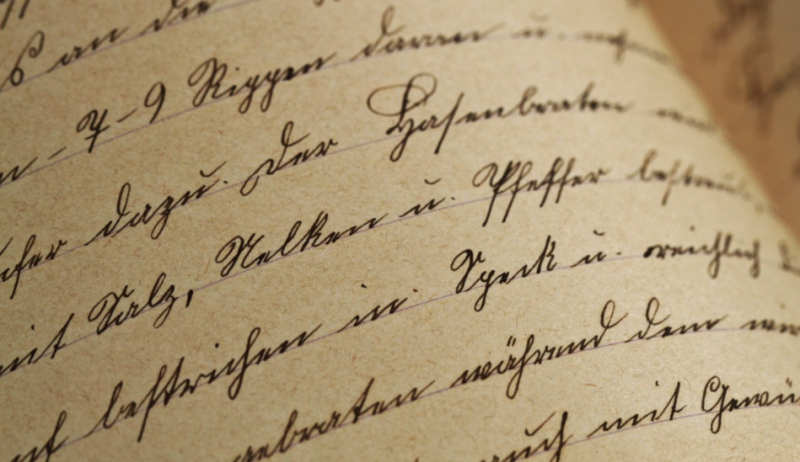 an die
7-9 Rippen daran u.
dazu. Der Hasenbraten
mit Salz, Nelken u. Pfeffer bestreut
bestrichen in Speck u. reichlich
gebraten während dem
auch mit Gewü